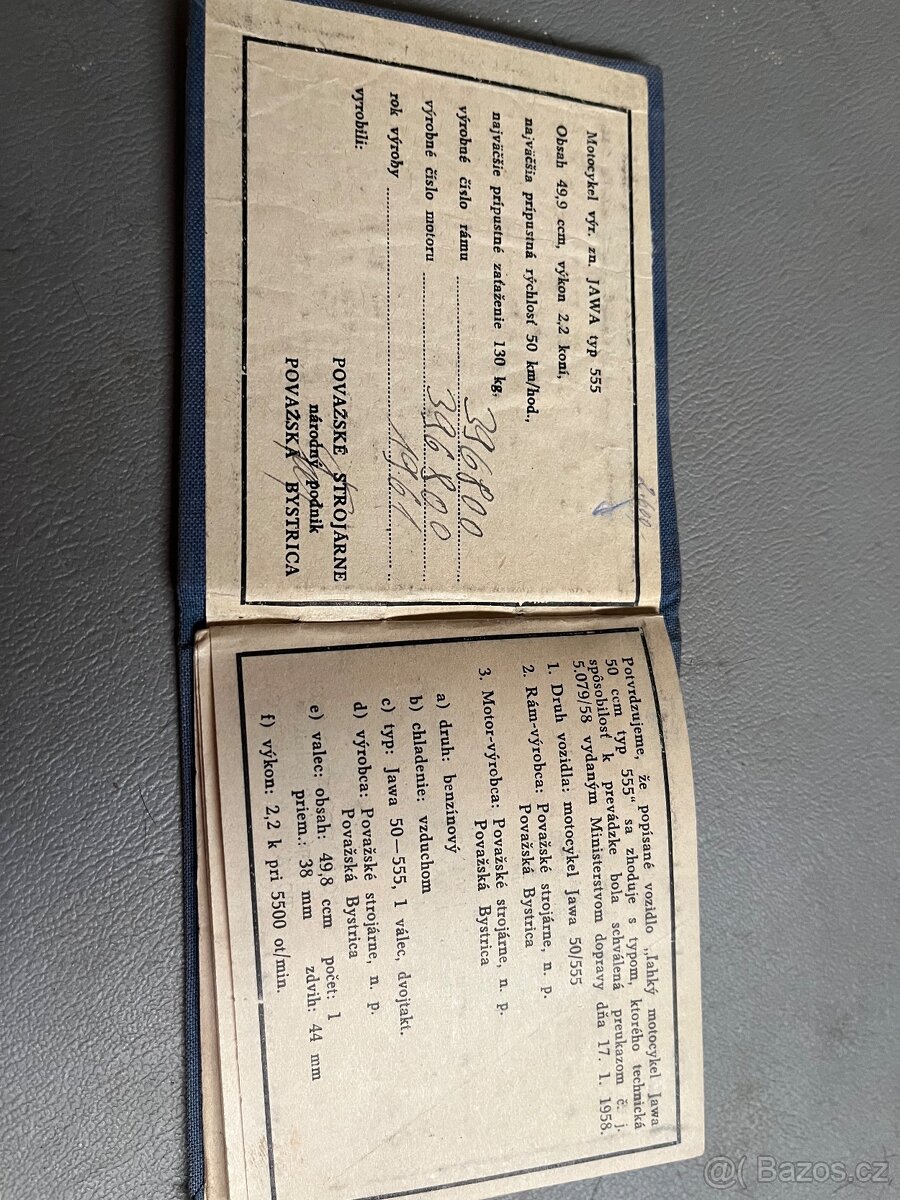 Motocykel výr. zn. JAWA typ 555
Obsah 49,9 ccm, výkon 2,2 koní,
najväčšia prípustná rýchlosť 50 km/hod.,
najväčšie prípustné zaťaženie 130 kg,
výrobné číslo rámu 396800
výrobné číslo motoru 396800
rok výroby 1961
vyrobili:
POVAŽSKÉ STROJÁRNE
národný podnik
POVAŽSKÁ BYSTRICA
Potvrdzujeme, že popísané vozidlo „ľahký motocykel Jawa
50 ccm typ 555“ sa zhoduje s typom, ktorého technická
spôsobilosť k prevádzke bola schválená preukazom č. j.
5.079/58 vydaným Ministerstvom dopravy dňa 17. 1. 1958.
1. Druh vozidla: motocykel Jawa 50/555
2. Rám-výrobca: Považské strojárne, n. p.
Považská Bystrica
3. Motor-výrobca: Považské strojárne, n. p.
Považská Bystrica
a) druh: benzínový
b) chladenie: vzduchom
c) typ: Jawa 50—555, 1 válec, dvojtakt.
d) výrobca: Považské strojárne, n. p.
Považská Bystrica
e) valec: obsah: 49,8 ccm počet: 1
priem.: 38 mm zdvih: 44 mm
f) výkon: 2,2 k pri 5500 ot/min.
@Bazos.cz